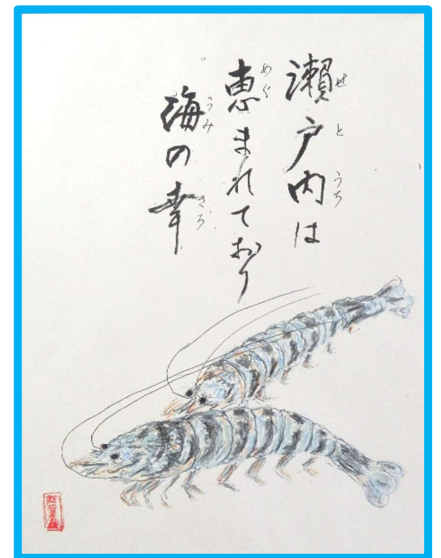 瀬戸内は
せとうち
恵まれており
めぐ
海の幸
うみ さち